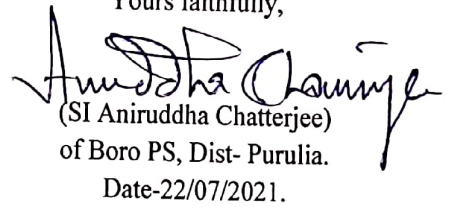 Yours faithfully,
Aniruddha Chatterjee
(SI Aniruddha Chatterjee)
of Boro PS, Dist- Purulia.
Date-22/07/2021.